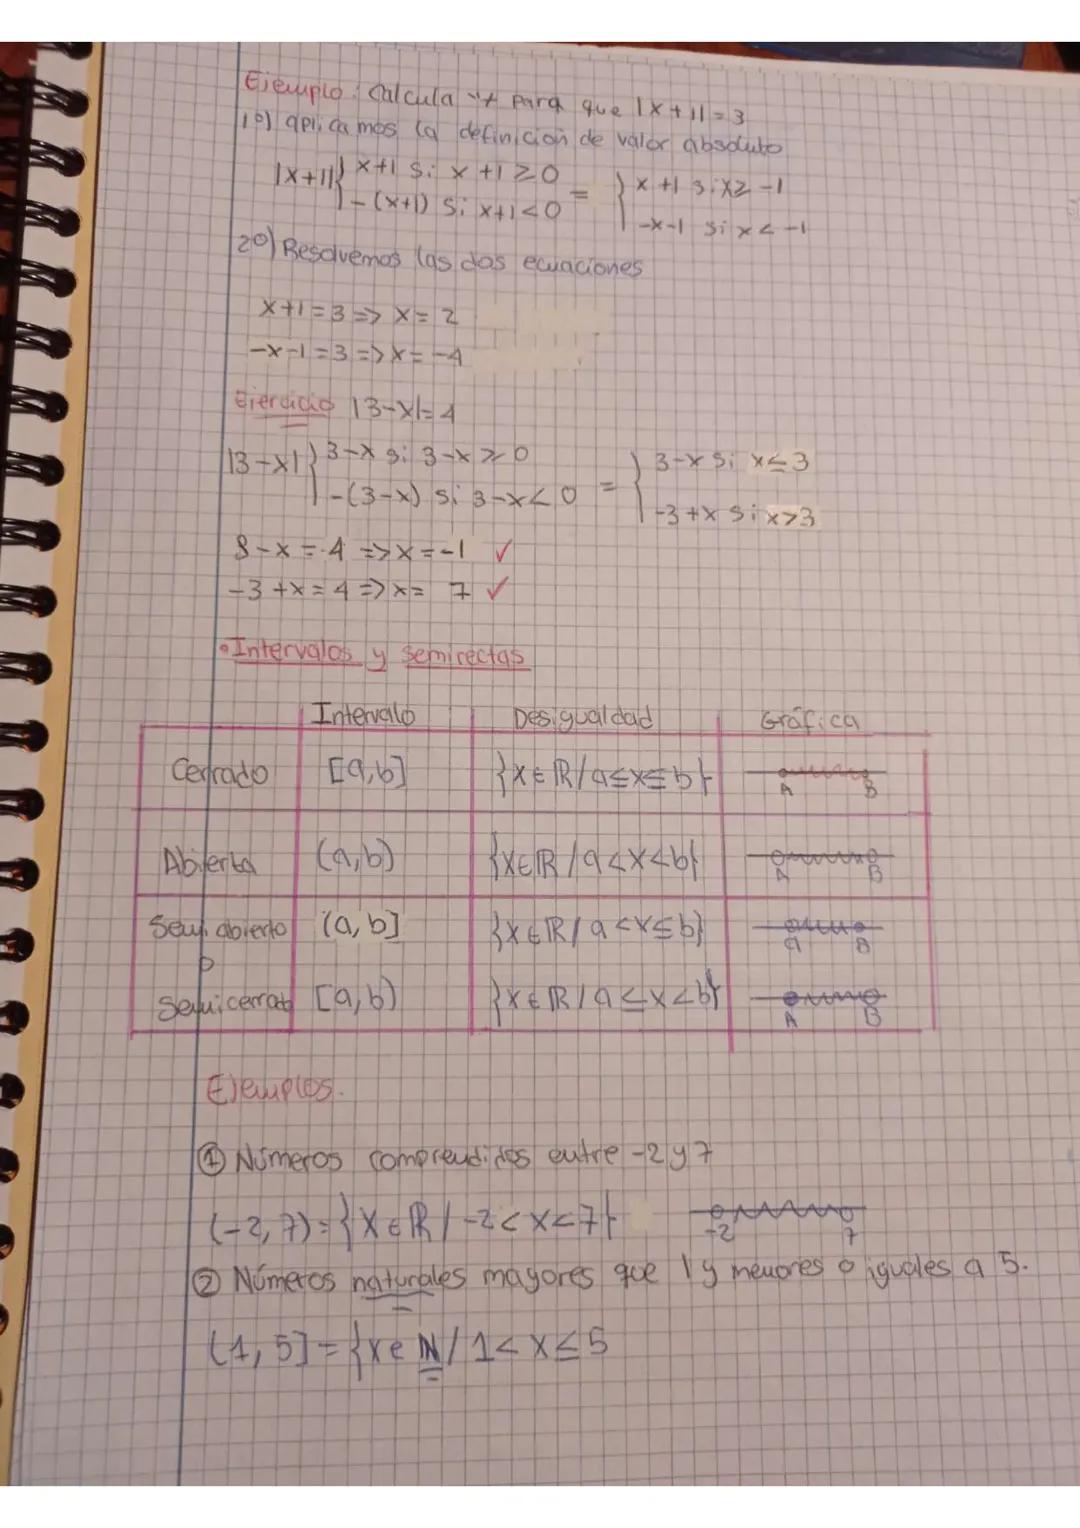 Ejemplo: Calcula x para que |x+1|=3
1º) aplicamos la definición de valor absoluto
|x+1| { x+1 si x+1≥0 = { x+1 si x≥-1
-(x+1) si x+1<0 -x-1 si x<-1
2º) Resolvemos las dos ecuaciones
x+1=3=> x=2
-x-1=3=>x=-4
Ejercicio |3-x|=4
|3-x| { 3-x si 3-x≥0 = { 3-x si x≤3
-(3-x) si 3-x<0 -3+x si x>3
3-x=4 =>x=-1 ✓
-3+x=4=>x= 7 ✓
• Intervalos y semirectas
Intervalo Desigualdad Gráfica
Cerrado [a,b] {x∈ℝ/a≤x≤b} A B
Abierta (a,b) {x∈ℝ/a<x<b} A B
Semi abierto (a,b] {x∈ℝ/a<x≤b} a B
o
Semicerrado [a,b) {x∈ℝ/a≤x<b} A B
Ejemplos.
① Números comprendidos entre -2 y 7
(-2,7)={x∈ℝ/-2<x<7} -2 7
② Números naturales mayores que 1 y menores o iguales a 5.
(1,5]={x∈ℕ/1<x≤5